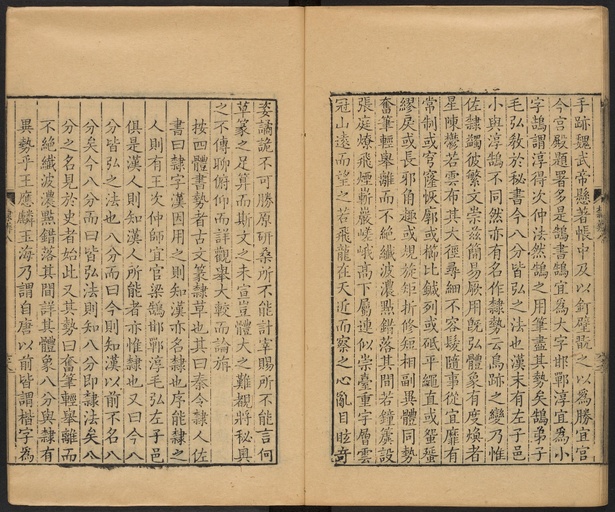 手跡魏武帝懸著帳中及以釘壁翫之以為勝宜官
今宮殿題署多是鵠書鵠宜為大字邯鄲淳宜為小
字鵠謂淳得次仲法然鵠之用筆盡其勢矣鵠弟子
毛弘敎於秘書今八分皆弘之法也漢末有左子邑
小與淳鵠不同然亦有名作隸勢云鳥跡之變乃惟
佐隸蠲彼繁文崇茲簡易厥用旣弘體象有度煥若
星陳鬱若雲布其大徑尋細不容髮隨事從宜靡有
常制或穹窿恢廓或櫛比鍼列或砥平繩直或蜿蜒
繆戾或長邪角趣或規旋矩折修短相副異體同勢
奮筆輕舉離而不絕纖波濃點錯落其間若鐘虡設
張庭燎飛煙嶄巖嵯峨高下屬連似崇臺重宇層雲
冠山遠而望之若飛龍在天近而察之心亂目眩奇
姿譎詭不可勝原研桑所不能計宰賜所不能言何
草篆之足算而斯文之未宣豈體大之難覩將秘奥
之不傳聊俯仰而詳觀舉大較而論旃
按四體書勢者古文篆隸草也其曰秦令隸人佐
書曰隸字漢因用之則知漢亦名隸也序能隸之
人則有王次仲師宜官梁鵠邯鄲淳毛弘左子邑
俱是漢人則知漢人所能者亦惟隸也又曰今八
分皆弘之法也八分而曰今則知漢以前不名八
分矣今八分而曰皆弘法則知八分卽隸法矣八
分之名見於史者始此又其勢曰奮筆輕舉離而
不絕纖波濃點錯落其間詳其體象八分與隸有
異勢乎王應麟玉海乃謂自唐以前皆謂楷字為